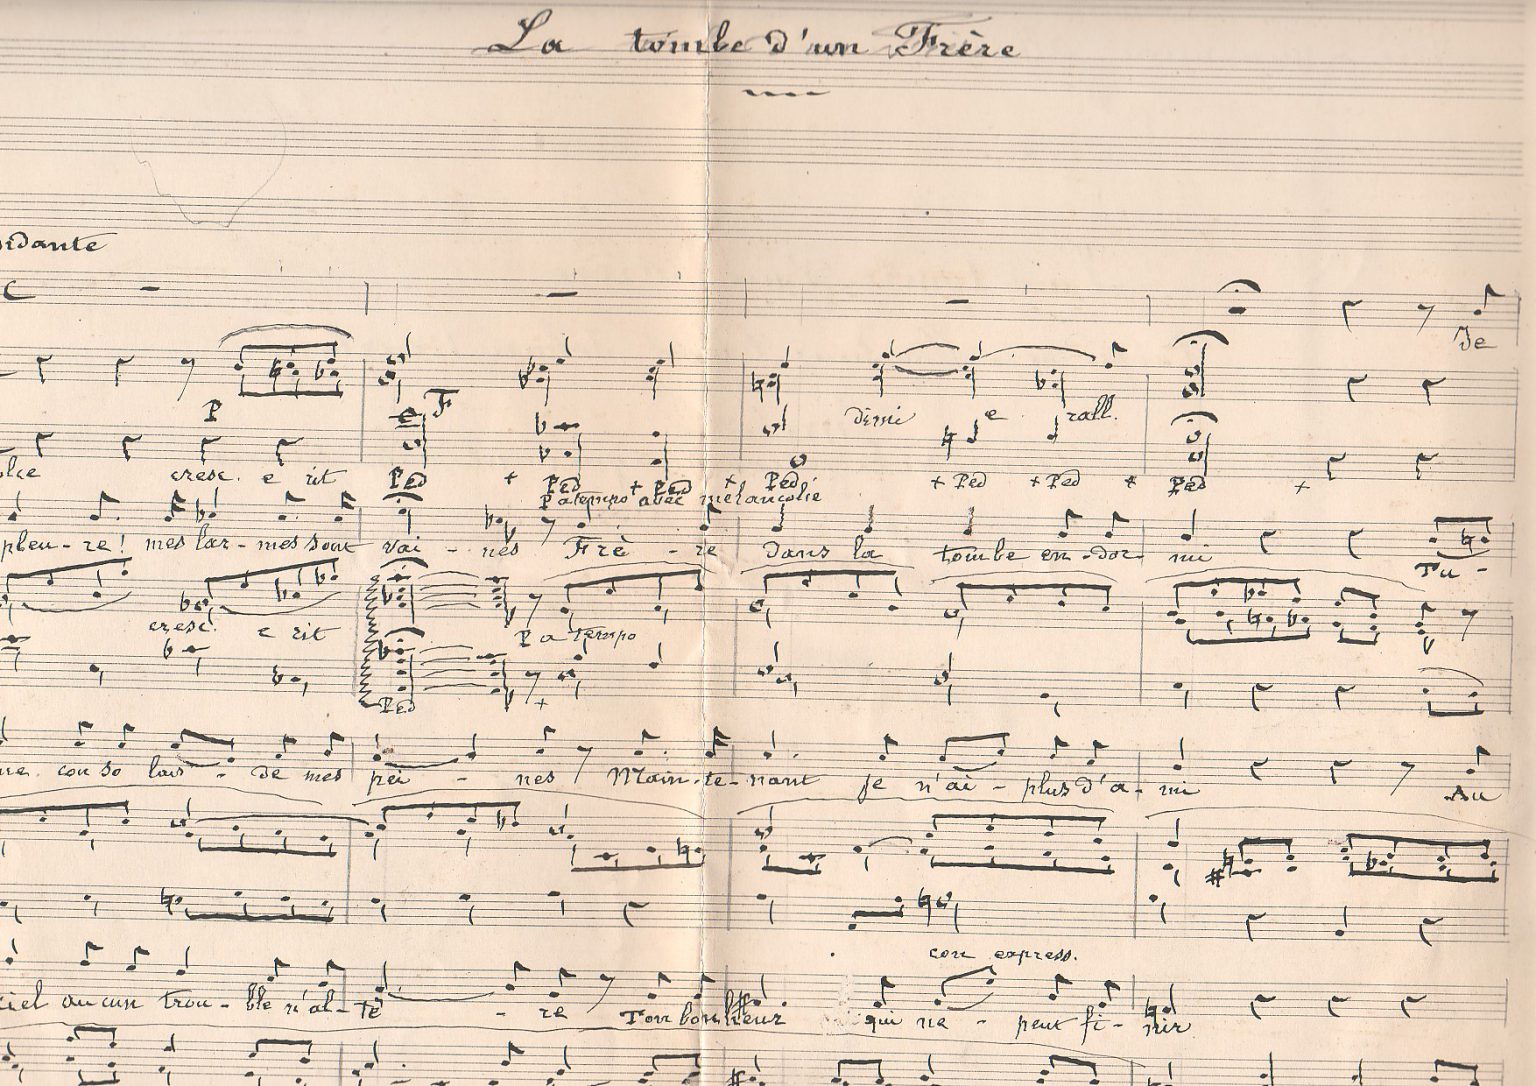 La tombe d'un Frère
Je
P F dimi e rall.
cresc. e rit Ped + Ped + Ped + Ped + Ped + Ped + Ped +
P a tempo avec mélancolie
pleu - re! mes lar - mes sont vai - nes Frè - re dans la tombe en - dor - mi Tu -
cresc. e rit P a Tempo
Ped +
con so lais - de mes pei - nes Main - te - nant je n'ai - plus d'a - mi Au
con express.
ciel aucun trou - ble n'al - tè - re Ton bonheur qui ne - peut fi - nir